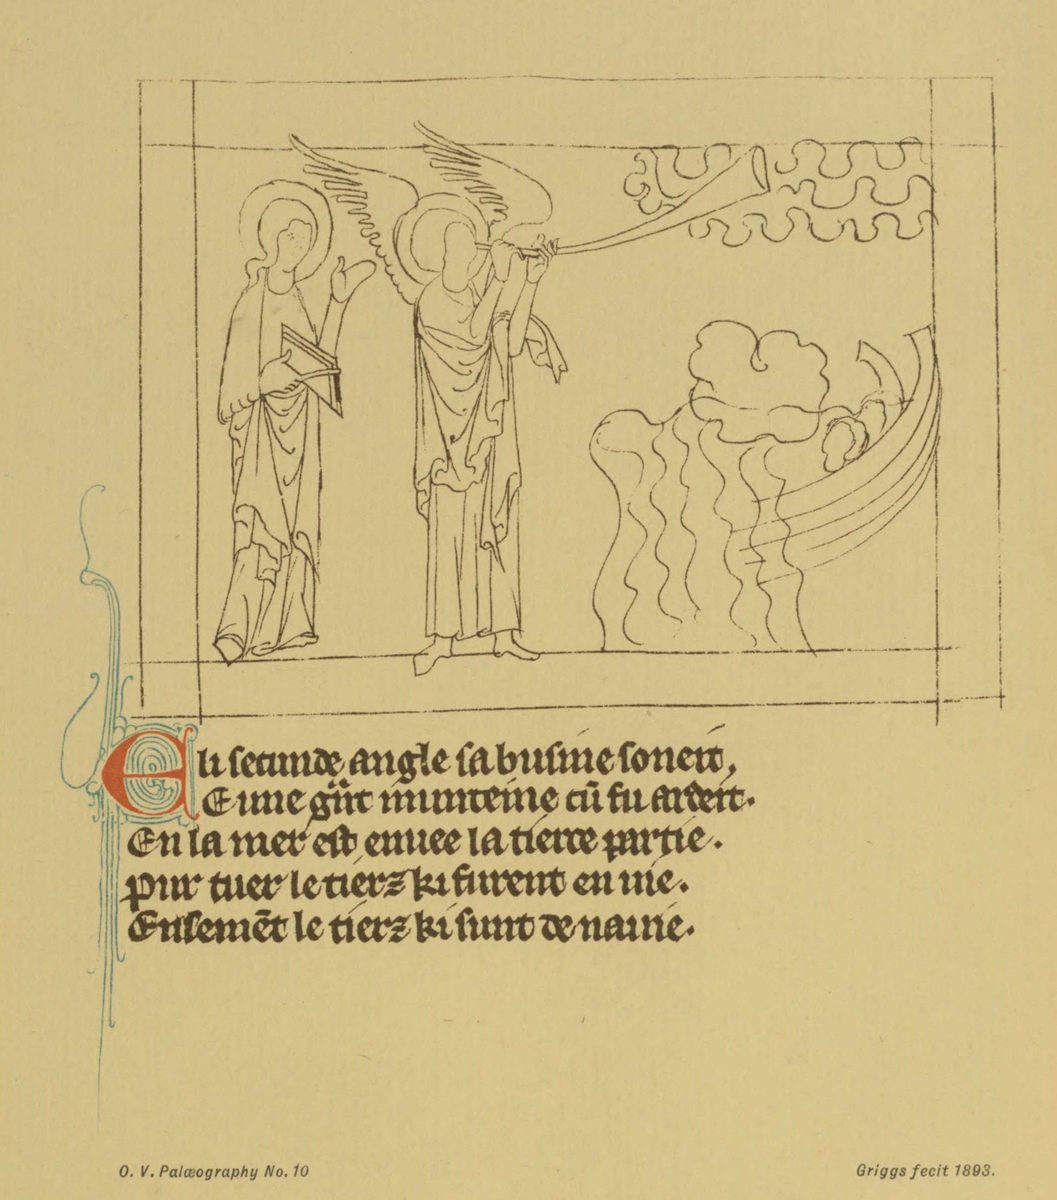 E li secunde angle sa busine soneit,
E une g̃nt munteine cū fu ardeit.
En la mer est enuee la tierce partie.
Pur tuer le tierz ki furent en uie.
Ensemẽt le tierz ki sunt de nauie.
O. V. Palæography No. 10
Griggs fecit 1893.